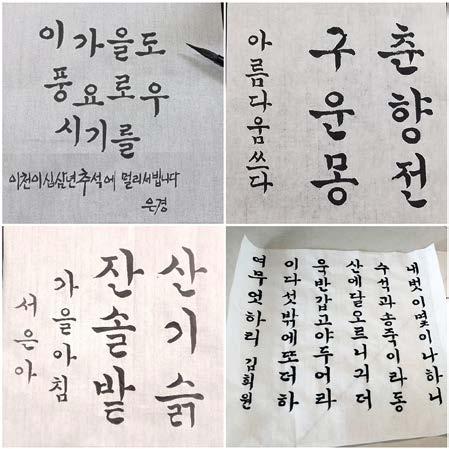 이 가을도
풍요로우
시기를
이천이십삼년 추석에 멀리서 빕니다
은경
춘향전
구운몽
아름다움쓰다
산기슭
잔솔밭
가을아침
서은아
내벗이몇이나하니
수석과송죽이라동
산에달오르니긔더
욱반갑고야두어라
이다섯밖에또더하
여무엇하리 김희원